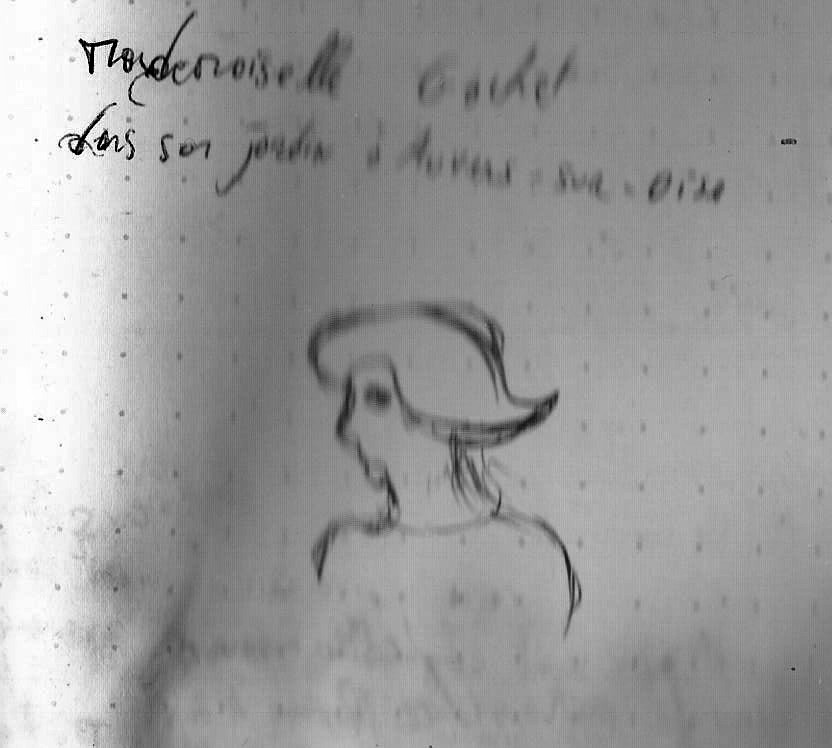 Mademoiselle Gachet
dans son jardin à Auvers-sur-Oise